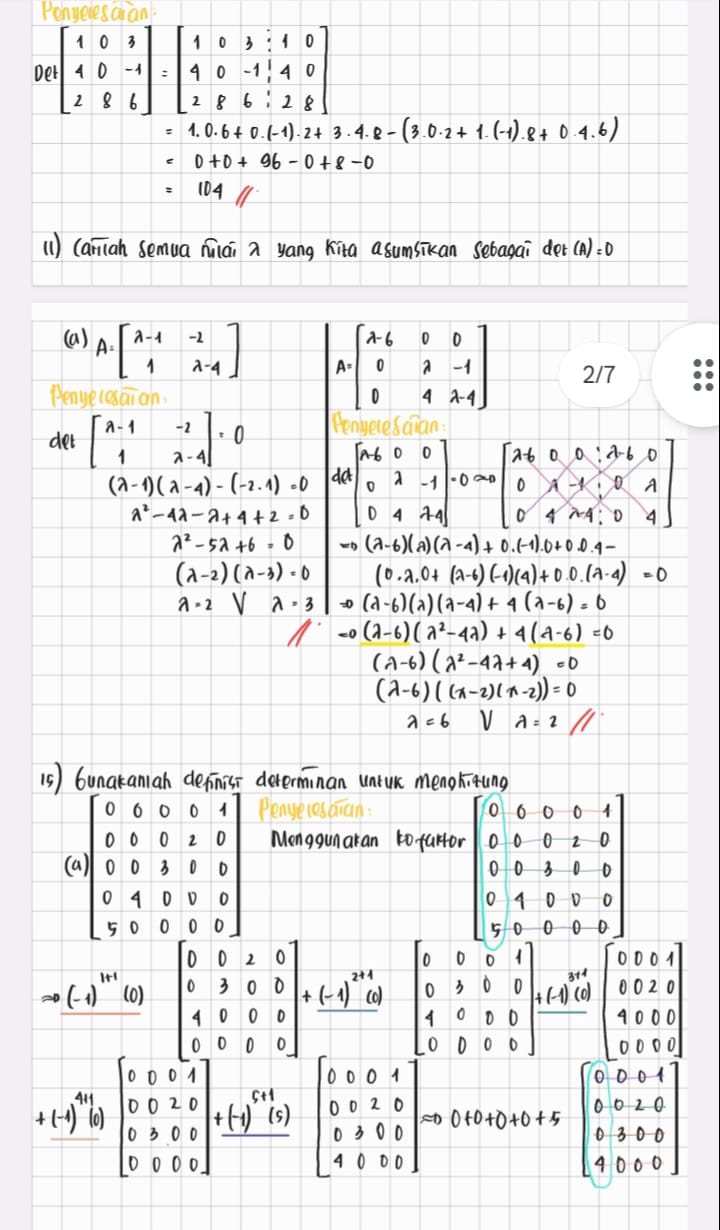 Penyelesaian:
Det [1 0 3; 4 0 -1; 2 8 6] = [1 0 3 ⋮ 1 0; 4 0 -1 ⋮ 4 0; 2 8 6 ⋮ 2 8]
= 1.0.6 + 0.(-1).2 + 3.4.8 - (3.0.2 + 1.(-1).8 + 0.4.6)
= 0+0+ 96 - 0 + 8 - 0
= 104 //
11) Carilah semua nilai λ yang kita asumsikan sebagai det (A) = 0
(a) A = [λ-1 -2; 1 λ-4]
Penyelesaian:
det [λ-1 -2; 1 λ-4] = 0
(λ-1)(λ-4) - (-2.1) = 0
λ²-4λ-λ+4+2 = 0
λ²-5λ+6 = 0
(λ-2)(λ-3) = 0
λ=2 V λ=3 //
A = [λ-6 0 0; 0 λ -1; 0 4 λ-4]
2/7
Penyelesaian:
det [λ-6 0 0; 0 λ -1; 0 4 λ-4] = 0 ⇒ [λ-6 0 0 ⋮ λ-6 0; 0 λ -1 ⋮ 0 λ; 0 4 λ-4 ⋮ 0 4]
⇒ (λ-6)(λ)(λ-4) + 0.(-1).0+0.0.4 -
(0.λ.0+ (λ-6)(-1)(4)+0.0.(λ-4) = 0
⇒ (λ-6)(λ)(λ-4) + 4(λ-6) = 0
⇒ (λ-6)(λ²-4λ) + 4(λ-6) = 0
(λ-6)(λ²-4λ+4) = 0
(λ-6)((λ-2)(λ-2)) = 0
λ=6 V λ=2 //
15) Gunakanlah definisi determinan untuk menghitung
(a) [0 0 0 0 1; 0 0 0 2 0; 0 0 3 0 0; 0 4 0 0 0; 5 0 0 0 0]
Penyelesaian:
Menggunakan kofaktor [0 0 0 0 1; 0 0 0 2 0; 0 0 3 0 0; 0 4 0 0 0; 5 0 0 0 0]
⇒ (-1)¹⁺¹ (0) [0 0 2 0; 0 3 0 0; 4 0 0 0; 0 0 0 0] + (-1)²⁺¹ (0) [0 0 0 1; 0 3 0 0; 4 0 0 0; 0 0 0 0] + (-1)³⁺¹ (0) [0 0 0 1; 0 0 2 0; 4 0 0 0; 0 0 0 0]
+ (-1)⁴⁺¹ (0) [0 0 0 1; 0 0 2 0; 0 3 0 0; 0 0 0 0] + (-1)⁵⁺¹ (5) [0 0 0 1; 0 0 2 0; 0 3 0 0; 4 0 0 0] ⇒ 0+0+0+0+5 [0 0 0 1; 0 0 2 0; 0 3 0 0; 4 0 0 0]